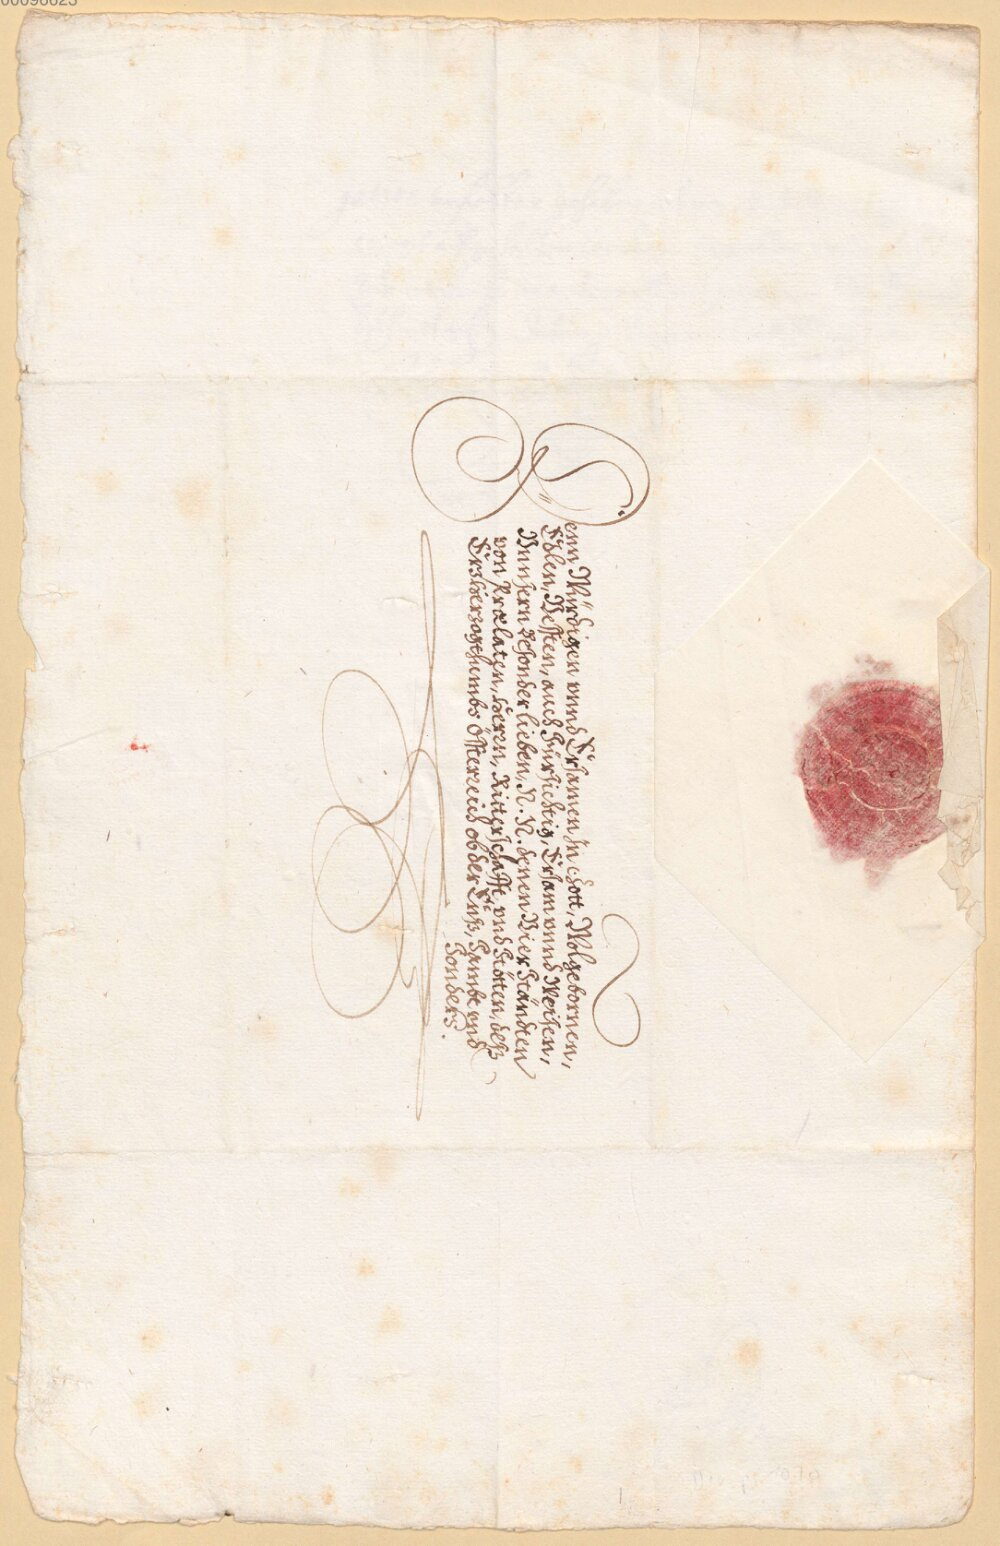 Denn Würdigen vnnd Ersamen In Gott, Wolgebornen,
Edlen, Vesten, auch Fürsichtig, Ersam vnnd Weisen,
Vnnsern besonder lieben, N. N. denen Vier Ständten
von Prælaten, Herren, Ritterschafft, vnd Stötten, deß
Erzherzogthumbs Össterreich ob der Enß, Sambt vnd
Sonders.